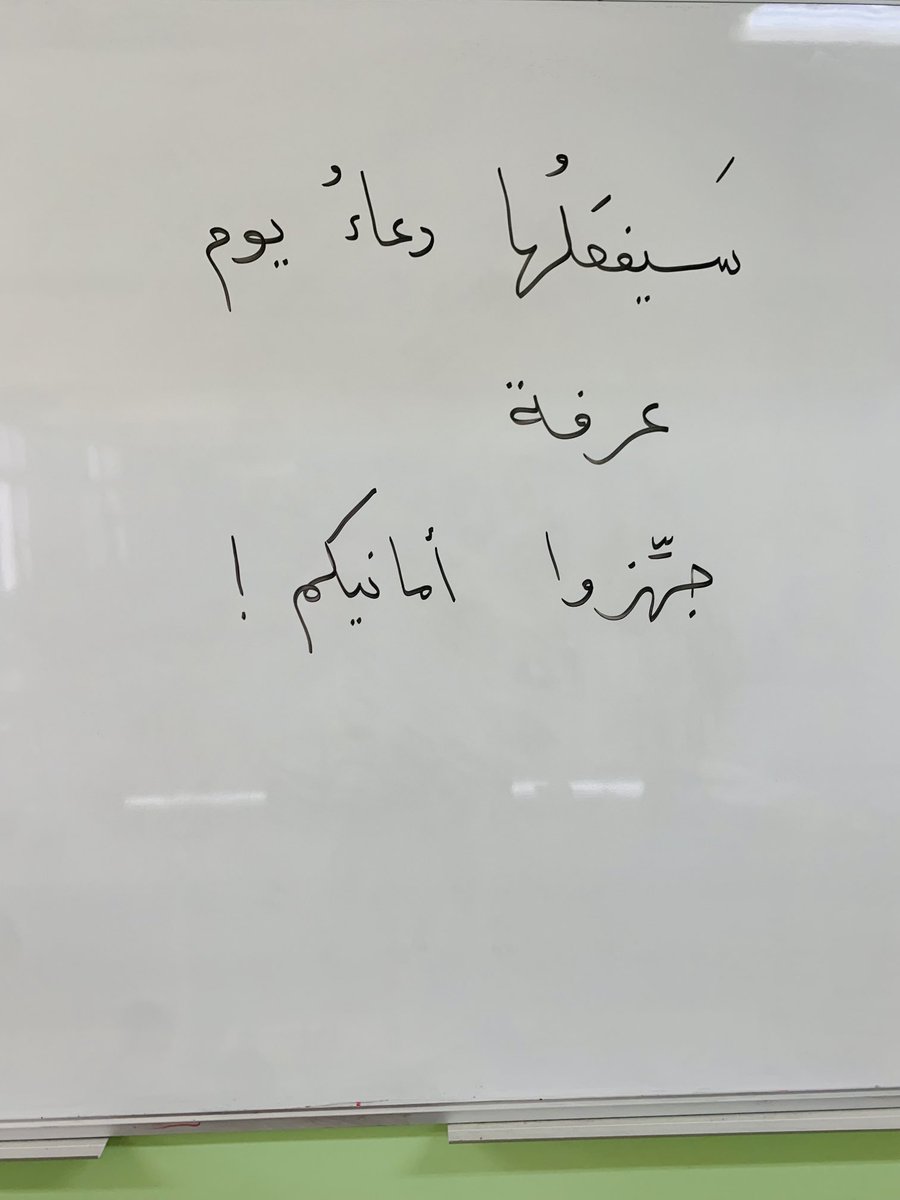 سَيفعَلُها دعاءُ يوم
عرفة
جهِّزوا أمانيكم !